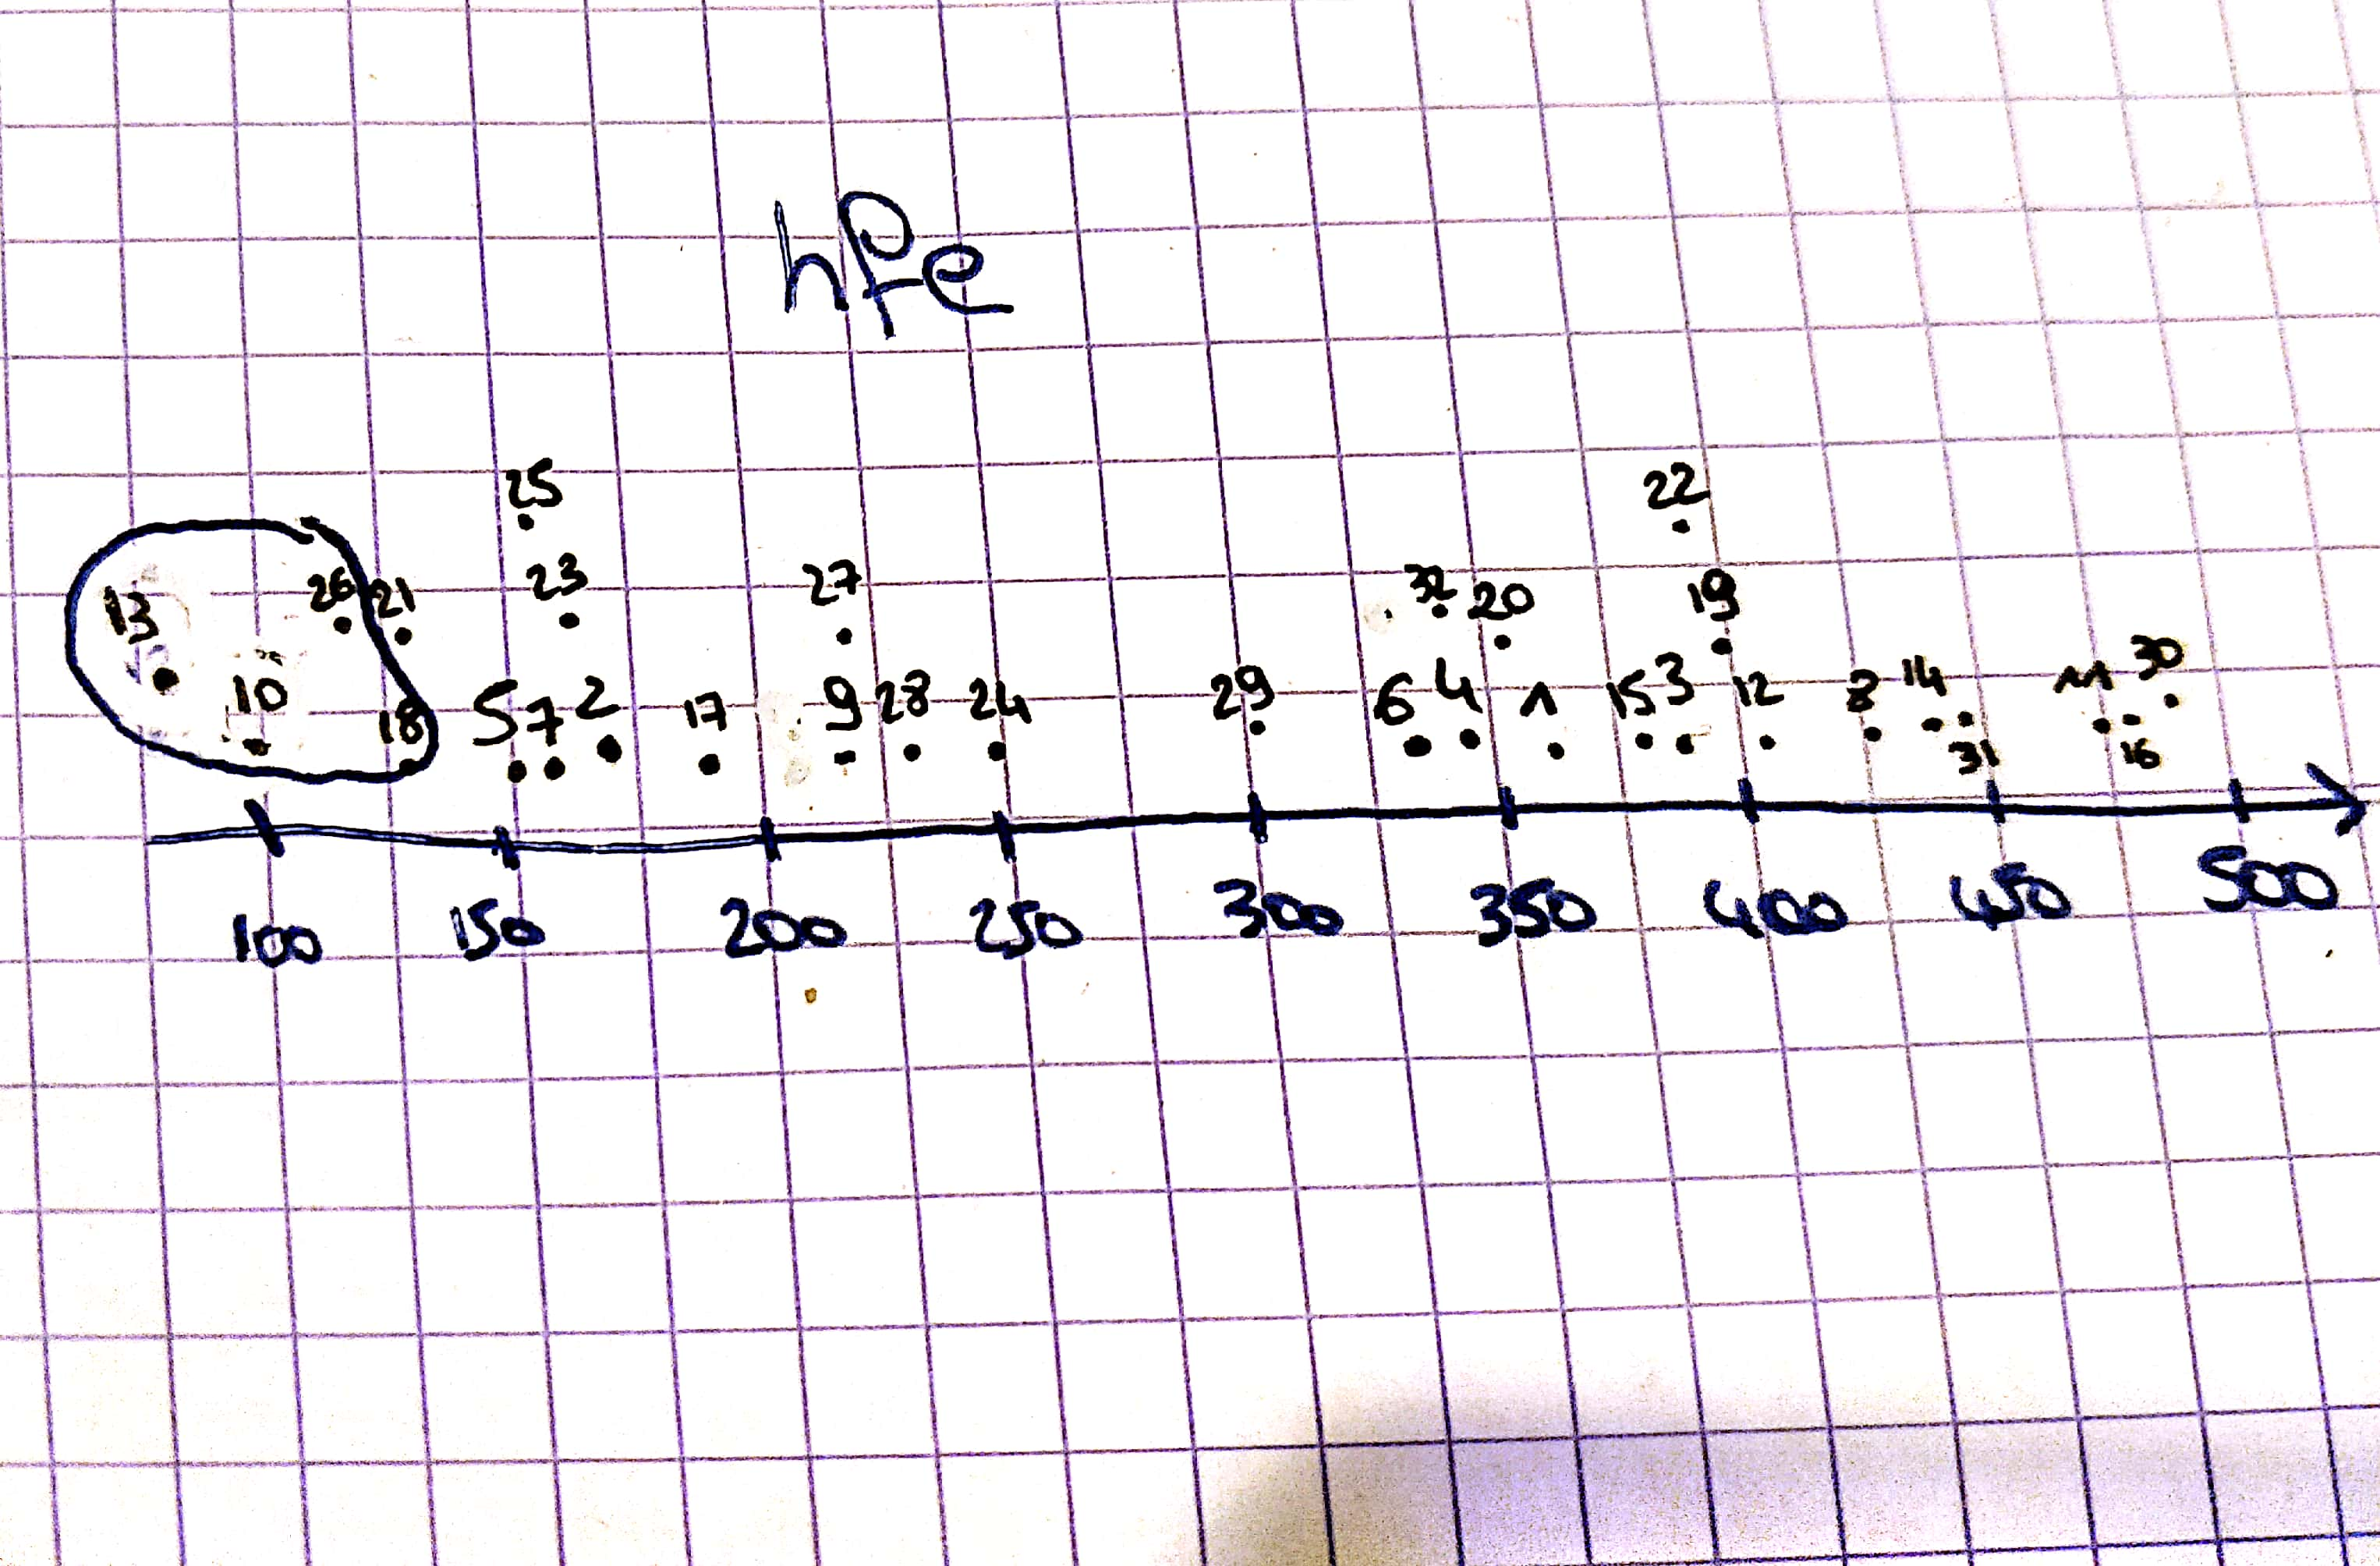 hfe
25 22
23 27 32 20 19
13 26 21
10 18 5 7 2 17 9 28 24 29 6 4 1 15 3 12 8 14 11 30
31 16
100 150 200 250 300 350 400 450 500